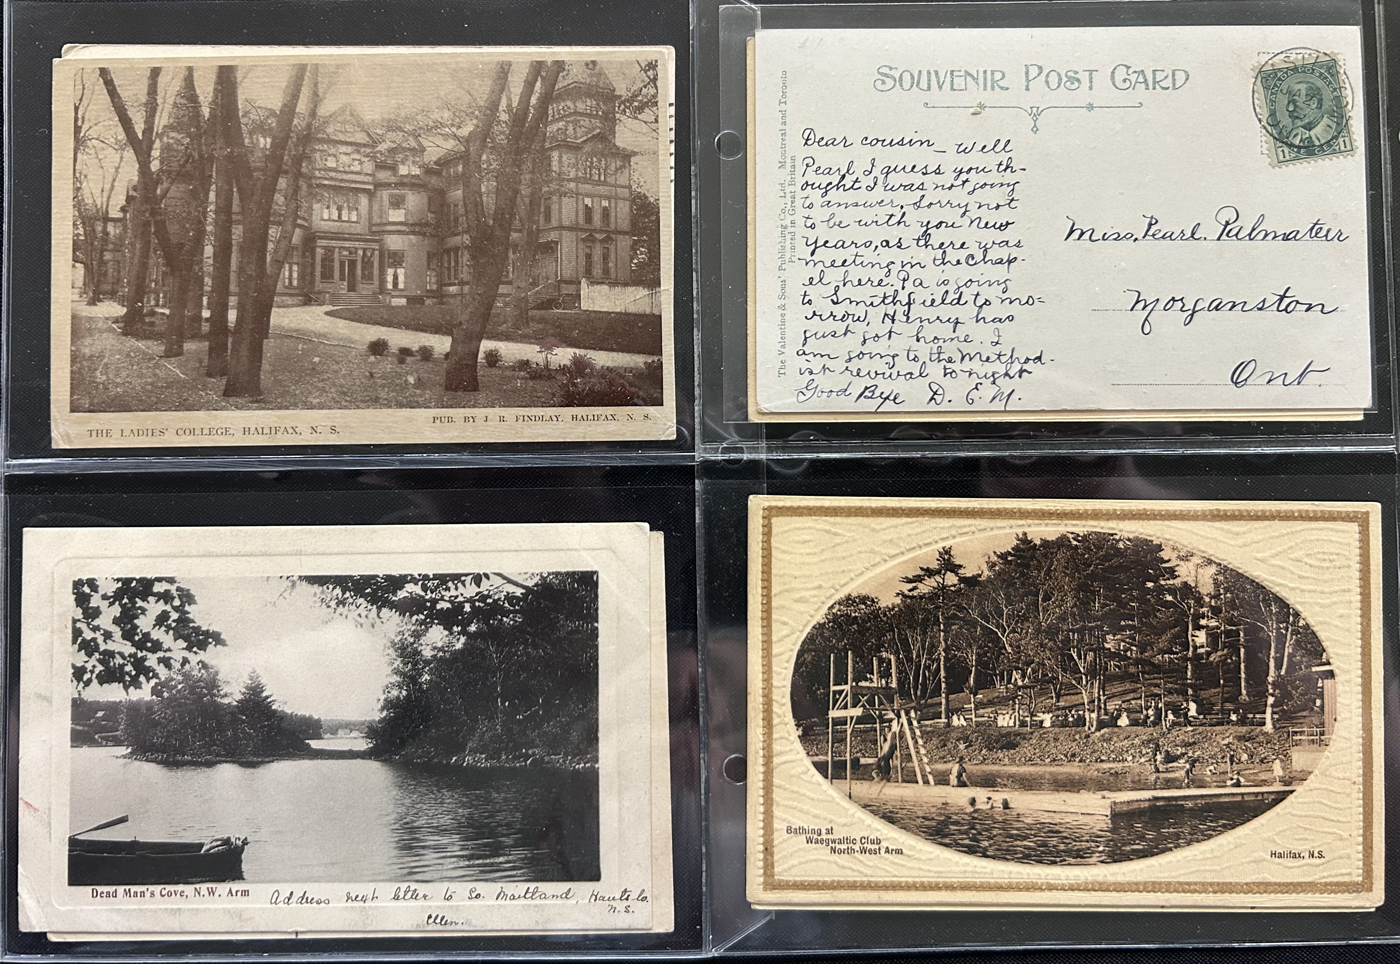 THE LADIES' COLLEGE, HALIFAX, N. S.
PUB. BY J. R. FINDLAY, HALIFAX, N. S.
The Valentine & Sons' Publishing Co., Ltd. Montreal and Toronto
Printed in Great Britain
SOUVENIR POST CARD
CANADA POSTAGE
1 ONE CENT 1
Dear cousin_ well
Pearl I guess you th-
ought I was not going
to answer, Sorry not
to be with you New
Years, as there was
meeting in the Chap-
el here. Pa is going
to Smithfield to mo-
rrow, Henry has
just got home. I
am going to, the Method-
ist revival to night
Good Bye D. E. M.
Miss, Pearl, Palmateer
Morganston
Ont.
Dead Man's Cove, N.W. Arm
Address next letter to So. Maitland, Hants Co.
N.S.
Ellen.
Bathing at
Waegwaltic Club
North-West Arm
Halifax, N.S.